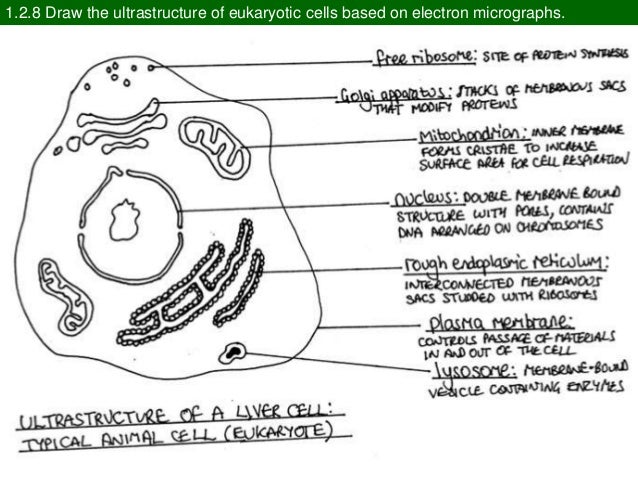 1.2.8 Draw the ultrastructure of eukaryotic cells based on electron micrographs.
free ribosome: SITE OF PROTEIN SYNTHESIS
Golgi apparatus: STACKS OF MEMBRANOUS SACS
THAT MODIFY PROTEINS
Mitochondrion: INNER MEMBRANE
FORMS CRISTAE TO INCREASE
SURFACE AREA FOR CELL RESPIRATION
nucleus: DOUBLE MEMBRANE BOUND
STRUCTURE WITH PORES, CONTAINS
DNA ARRANGED ON CHROMOSOMES
rough endoplasmic reticulum:
INTERCONNECTED MEMBRANOUS
SACS STUDDED WITH RIBOSOMES
plasma membrane:
CONTROLS PASSAGE OF MATERIALS
IN AND OUT OF THE CELL
lysosome: MEMBRANE-BOUND
VESICLE CONTAINING ENZYMES
ULTRASTRUCTURE OF A LIVER CELL:
TYPICAL ANIMAL CELL (EUKARYOTE)